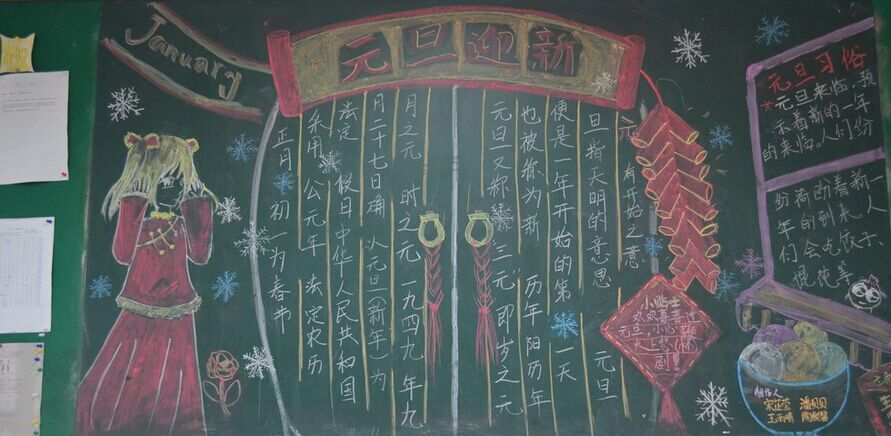 January
元旦迎新
元，有开始之意
旦指天明的意思 元旦
便是一年开始的第一天
也被称为新 历年阳历年
元旦又称“三元”即岁之元
月之元 时之元 一九四九年九
月二十七日确 认元旦(新年)为
法定 假日中华人民共和国
采用 公元年 法定农历
正月初一为春节
元旦习俗
*元旦来临,预
示着新的一年
的来临。人们份
份荷盼着新一
年的到来,人
们会吃饺子、
馄饨等
小贴士
欢欢喜喜迎
元旦,小心
制作人
潘贝贝